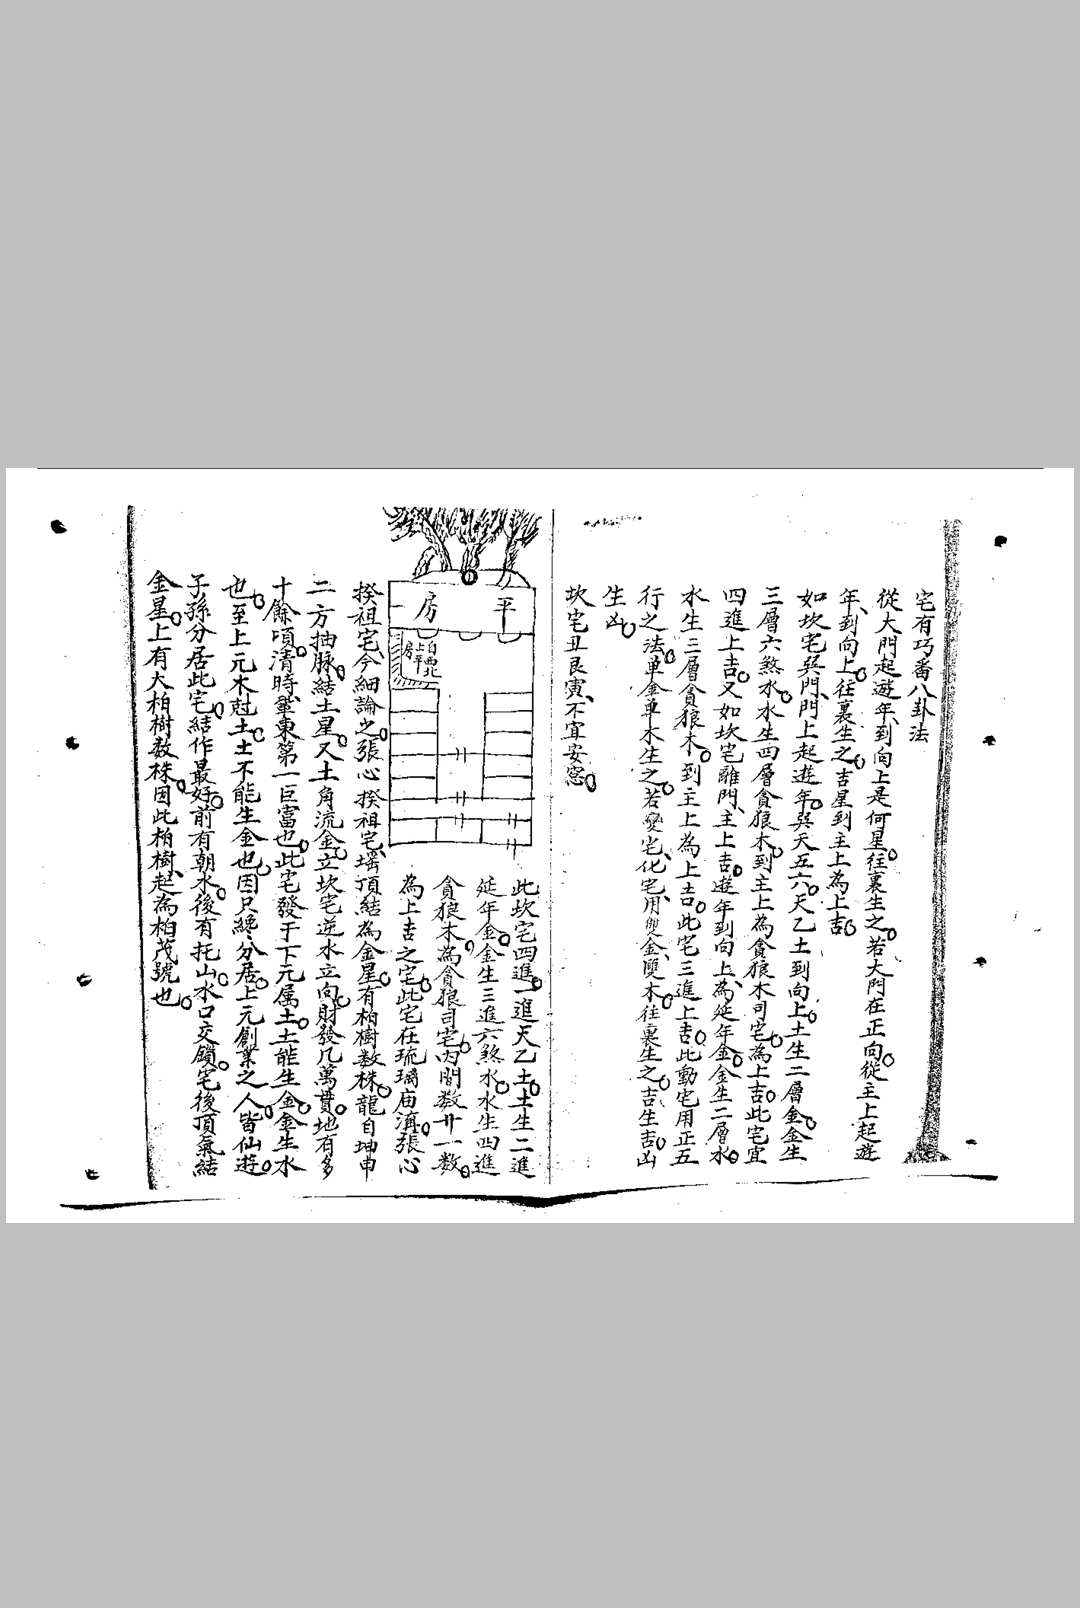 宅有巧番八卦法
從大門起遊年、到向上是何星。往裏生之。若大門在正向。從主上起遊
年、到向上。往裏生之。吉星到主上為上吉。
如坎宅巽門、門上起遊年。巽天五六。天乙土到向上。土生二層金。金生
三層六煞水。水生四層貪狼木。到主上為貪狼木司宅。為上吉。此宅宜
四進上吉。又如坎宅離門、主上吉。遊年到向上、為延年金。金生二層水。
水生三層貪狼木。到主上為上吉。此宅三進上吉。此動宅用正五
行之法。單金單木生之。若變宅、化宅、用雙金、雙木。往裏生之。吉生吉。凶
生凶。
坎宅丑艮寅、不宜安窓。
平房
自西北上平房
此坎宅四進。一進天乙土。土生二進
延年金。金生三進六煞水。水生四進
貪狼木為貪狼司宅。內間数廿一数。
為上吉之宅。此宅在琉璃庙滇。張心
揆祖宅、今細論之。張心揆祖宅、瑶頂結為金星。有柏樹数株。龍自坤申
二方抽脉。結土星。又土角流金。立坎宅逆水立向。財發几萬貫。地有多
十餘頃。清時、肇東第一巨富也。此宅發于下元属土。土能生金。金生水
也。至上元木尅土。土不能生金也。因只纔分居。上元創業之人。皆仙遊。
子孫分居此宅。結作最好。前有朝水。後有托山。水口交鎖。宅後頂氣結
金星。上有大柏樹数株。因此柏樹、起為柏茂號也。